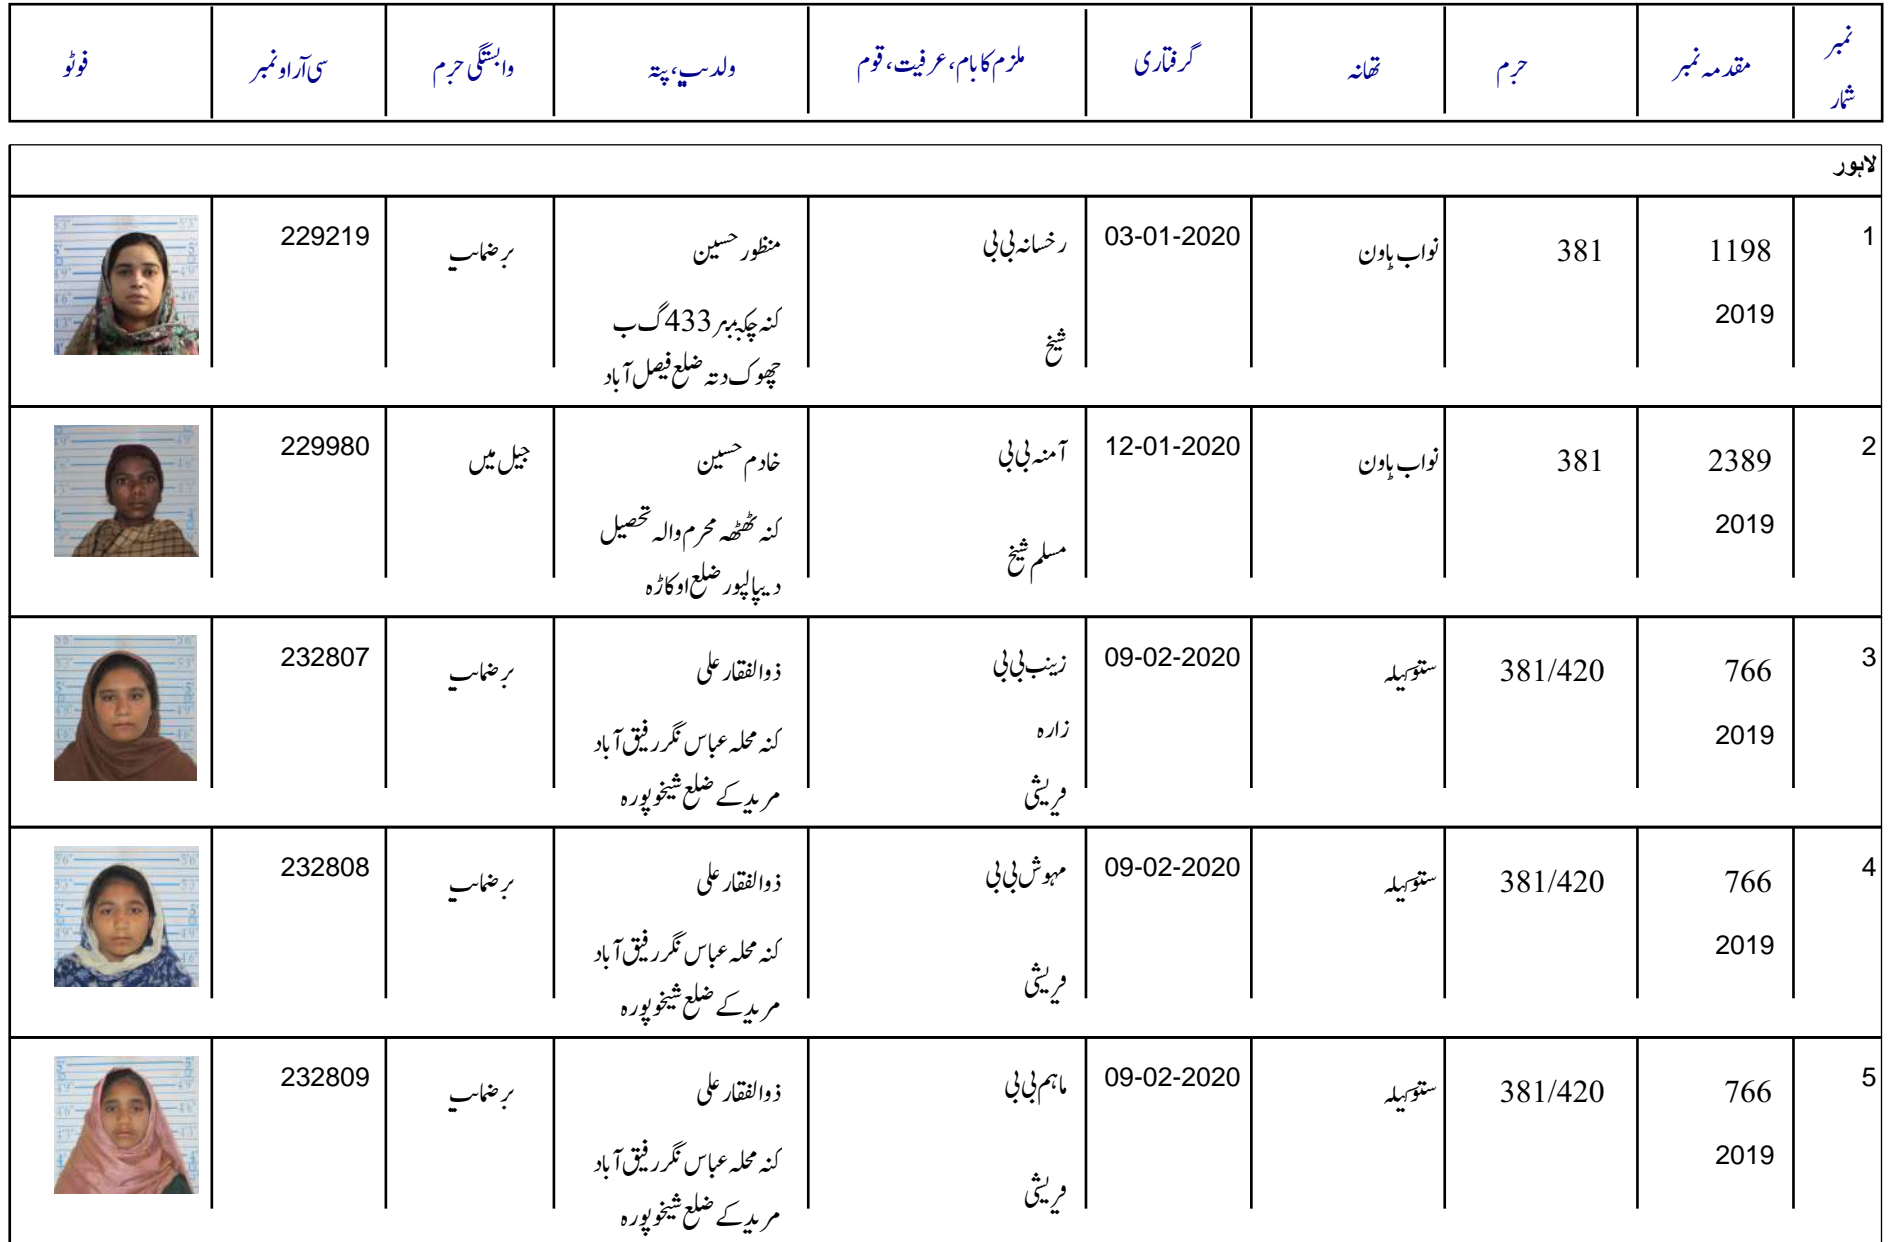 نمبر شمار
مقدمہ نمبر
جرم
تھانہ
گرفتاری
ملزم کا نام، عرفیت، قوم
ولدیت، پتہ
وابستگی جرم
سی آر او نمبر
فوٹو
لاہور
1
1198
2019
381
نواب ٹاون
03-01-2020
رخسانہ بی بی
شیخ
منظور حسین
433 گ ب
ضلع فیصل آباد
بر ضمانت
229219
2
2389
2019
381
نواب ٹاون
12-01-2020
آمنہ بی بی
مسلم شیخ
خادم حسین
کنہ ٹھٹھہ محرم والہ تحصیل
دیپالپور ضلع اوکاڑہ
جیل میں
229980
3
766
2019
381/420
ستوکتلہ
09-02-2020
زینب بی بی
زارہ
قریشی
ذوالفقار علی
کنہ محلہ عباس نگر رفیق آباد
مریدکے ضلع شیخوپورہ
بر ضمانت
232807
4
766
2019
381/420
ستوکتلہ
09-02-2020
مہوش بی بی
قریشی
ذوالفقار علی
کنہ محلہ عباس نگر رفیق آباد
مریدکے ضلع شیخوپورہ
بر ضمانت
232808
5
766
2019
381/420
ستوکتلہ
09-02-2020
ماہم بی بی
قریشی
ذوالفقار علی
کنہ محلہ عباس نگر رفیق آباد
مریدکے ضلع شیخوپورہ
بر ضمانت
232809